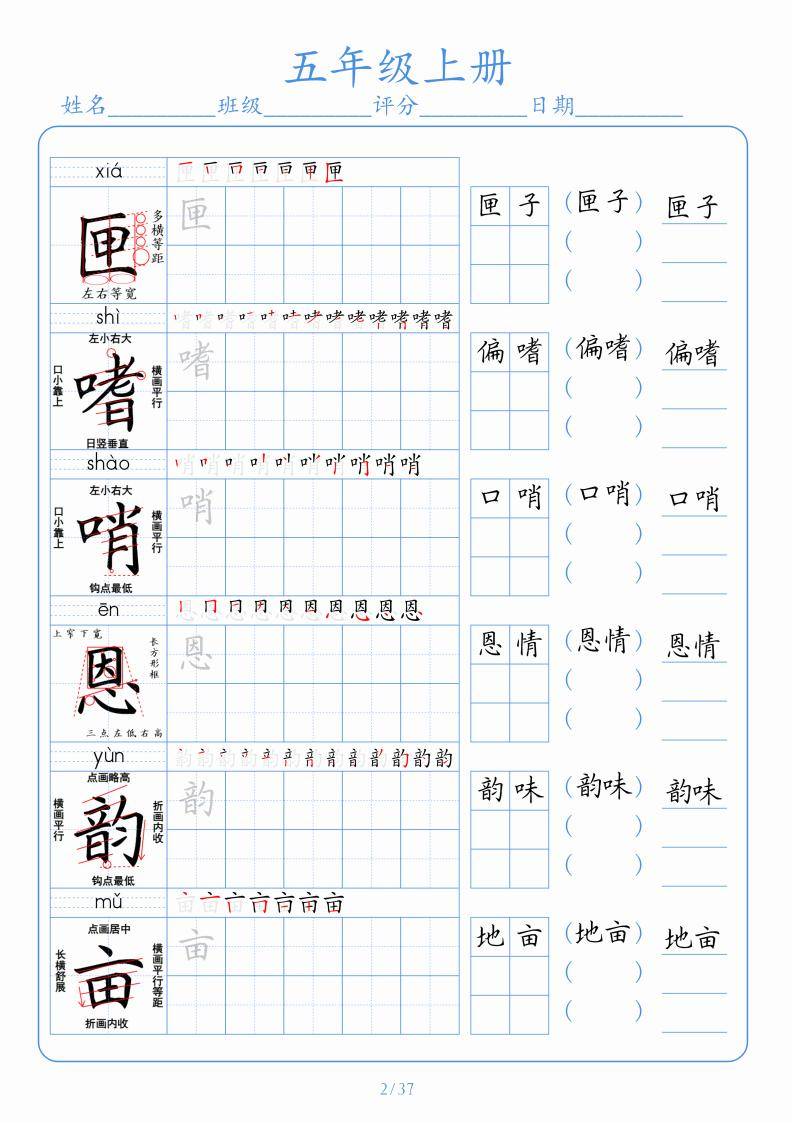 五年级上册
姓名__________班级__________评分__________日期__________
xiá
匣
多横等距
左右等宽
匣
匣 子 （匣子） 匣子
（ ）
（ ）
shì
左小右大
口小靠上
嗜
横画平行
日竖垂直
嗜
偏 嗜 （偏嗜） 偏嗜
（ ）
（ ）
shào
左小右大
口小靠上
哨
横画平行
钩点最低
哨
口 哨 （口哨） 口哨
（ ）
（ ）
ēn
上窄下宽
恩
长方形框
三点左低右高
恩
恩 情 （恩情） 恩情
（ ）
（ ）
yùn
点画略高
横画平行
韵
折画内收
钩点最低
韵
韵 味 （韵味） 韵味
（ ）
（ ）
mǔ
点画居中
长横舒展
亩
横画平行等距
折画内收
亩
地 亩 （地亩） 地亩
（ ）
（ ）
2/37